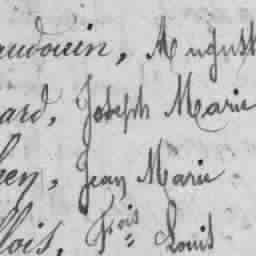 audouin, August
ard, Joseph Marie
een, Jean Marie
llois, Fois Louis